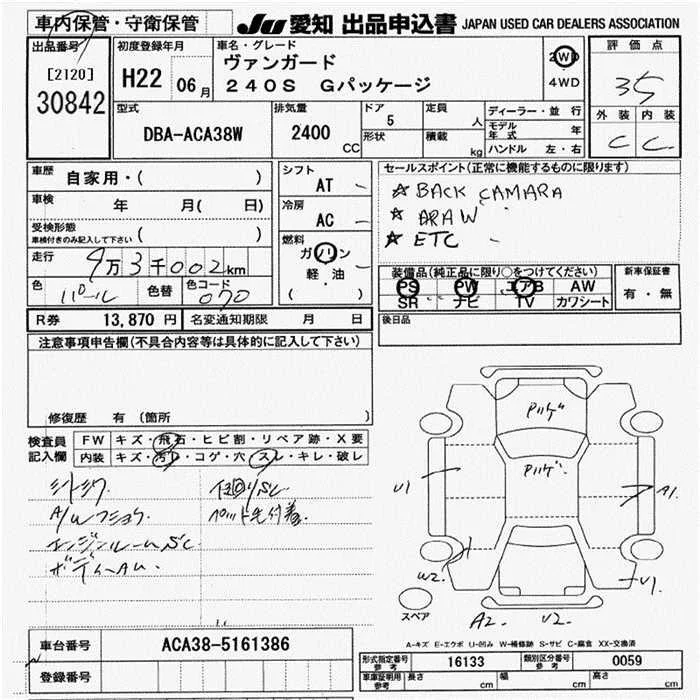 車内保管・守衛保管
JU 愛知 出品申込書 JAPAN USED CAR DEALERS ASSOCIATION
出品番号
[2120]
30842
初度登録年月
H22 06月
車名・グレード
ヴァンガード
240S Gパッケージ
2WD
4WD
評価点
35
外装 内装
C C
型式
DBA-ACA38W
排気量
2400 CC
ドア
5
形状
定員 人
積載 kg
ディーラー・並行
モデル年式 年
ハンドル 左・右
車歴 自家用・( )
車検 年 月( 日)
受検形態
車検付きのみ記入して下さい ( )
走行 9万3千002km
色 パール 色替 色コード 070
シフト
AT
冷房
AC
燃料
ガソリン
軽・油
( )
セールスポイント(正常に機能するものに限ります)
☆BACK CAMARA
☆ARAW
☆ETC
装備品(純正品に限り○をつけてください)
PS PW エアB AW
SR ナビ TV カワシート
新車保証書
有・無
R券 13,870 円 名変通知期限 月 日
後日品
注意事項申告欄(不具合内容等は具体的に記入して下さい)
修復歴 有(箇所
検査員
記入欄
FW キズ・飛石・ヒビ割・リペア跡・X要
内装 キズ・汚レ・コゲ・穴・スレ・キレ・破レ
エンジンルームSC
ペット先付着
U1
A1
W2
U1
A2
U2
スペア
A-キズ E-エクボ U-凹み W-補修跡 S-サビ C-腐食 XX-交換済
車台番号 ACA38-5161386
登録番号
形式指定番号 参考 16133 類別区分番号 参考 0059
車庫証明用 参考 長さ cm 幅 cm 高さ cm